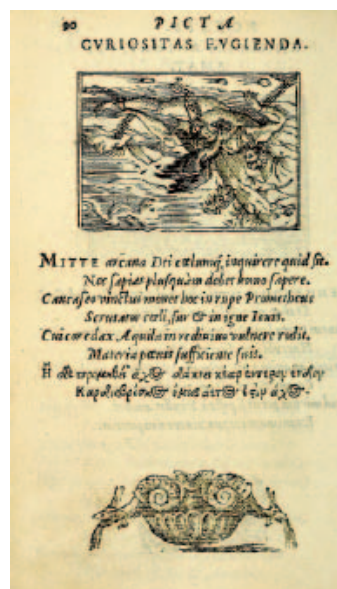 90 PICTA
CVRIOSITAS FVGIENDA.
MITTE arcana Dei cœlumq́; inquirere quid sit.
Nec sapias plusquàm debet homo sapere.
Caucaseo vinctus monet hoc in rupe Prometheus
Scrutator cœli, fur & in igne Iouis.
Cui cor edax Aquila in rediuiuo vulnere rodit.
Materia pœnis sufficiente suis.